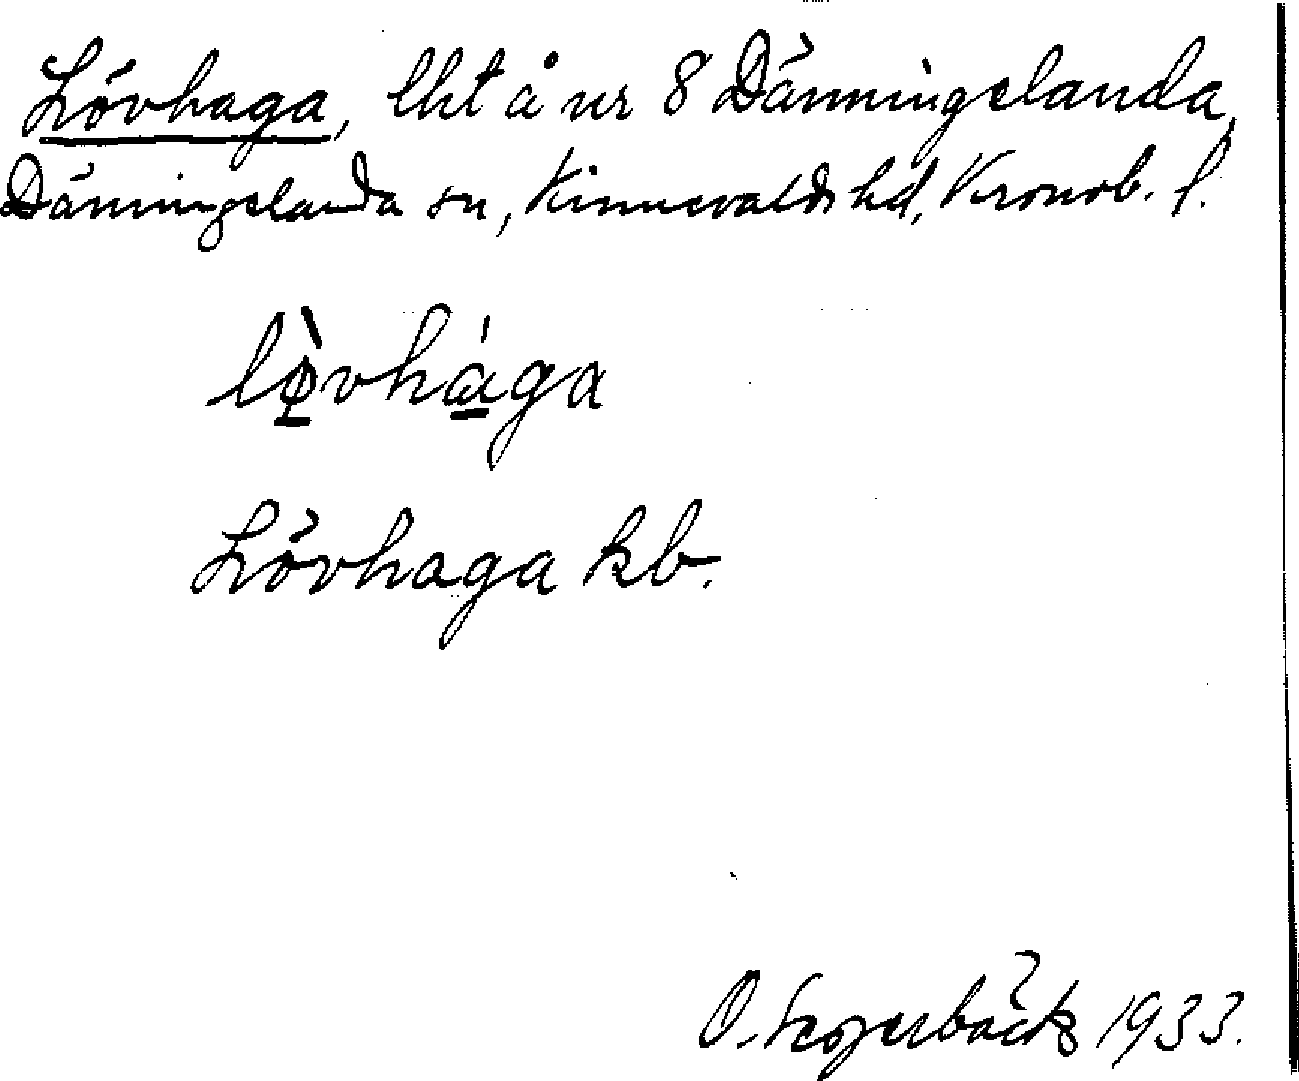 Lövhaga, lht å nr 8 Dänningelanda,
Dänningelanda sn, Kinnevalds hd, Kronob. l.
lø̀vhága
Lövhaga kb.
O. 1933.